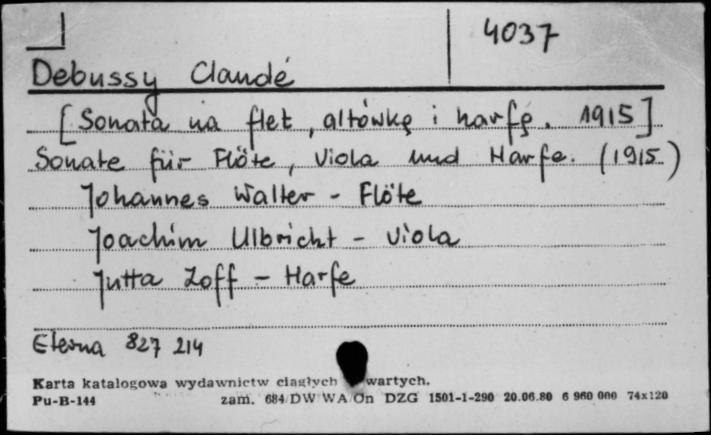 4037
Debussy Claudé
[Sonata na flet, altówkę i harfę. 1915]
Sonate für Flöte, Viola und Harfe. (1915)
Johannes Walter - Flöte
Joachim Ulbricht - Viola
Jutta Zoff - Harfe
Eterna 827 214
Karta katalogowa wydawnictw ciągłych wartych.
Pu-B-144 zam. 684/DW WA/On DZG 1501-1-290 20.06.80 6 960 000 74x120